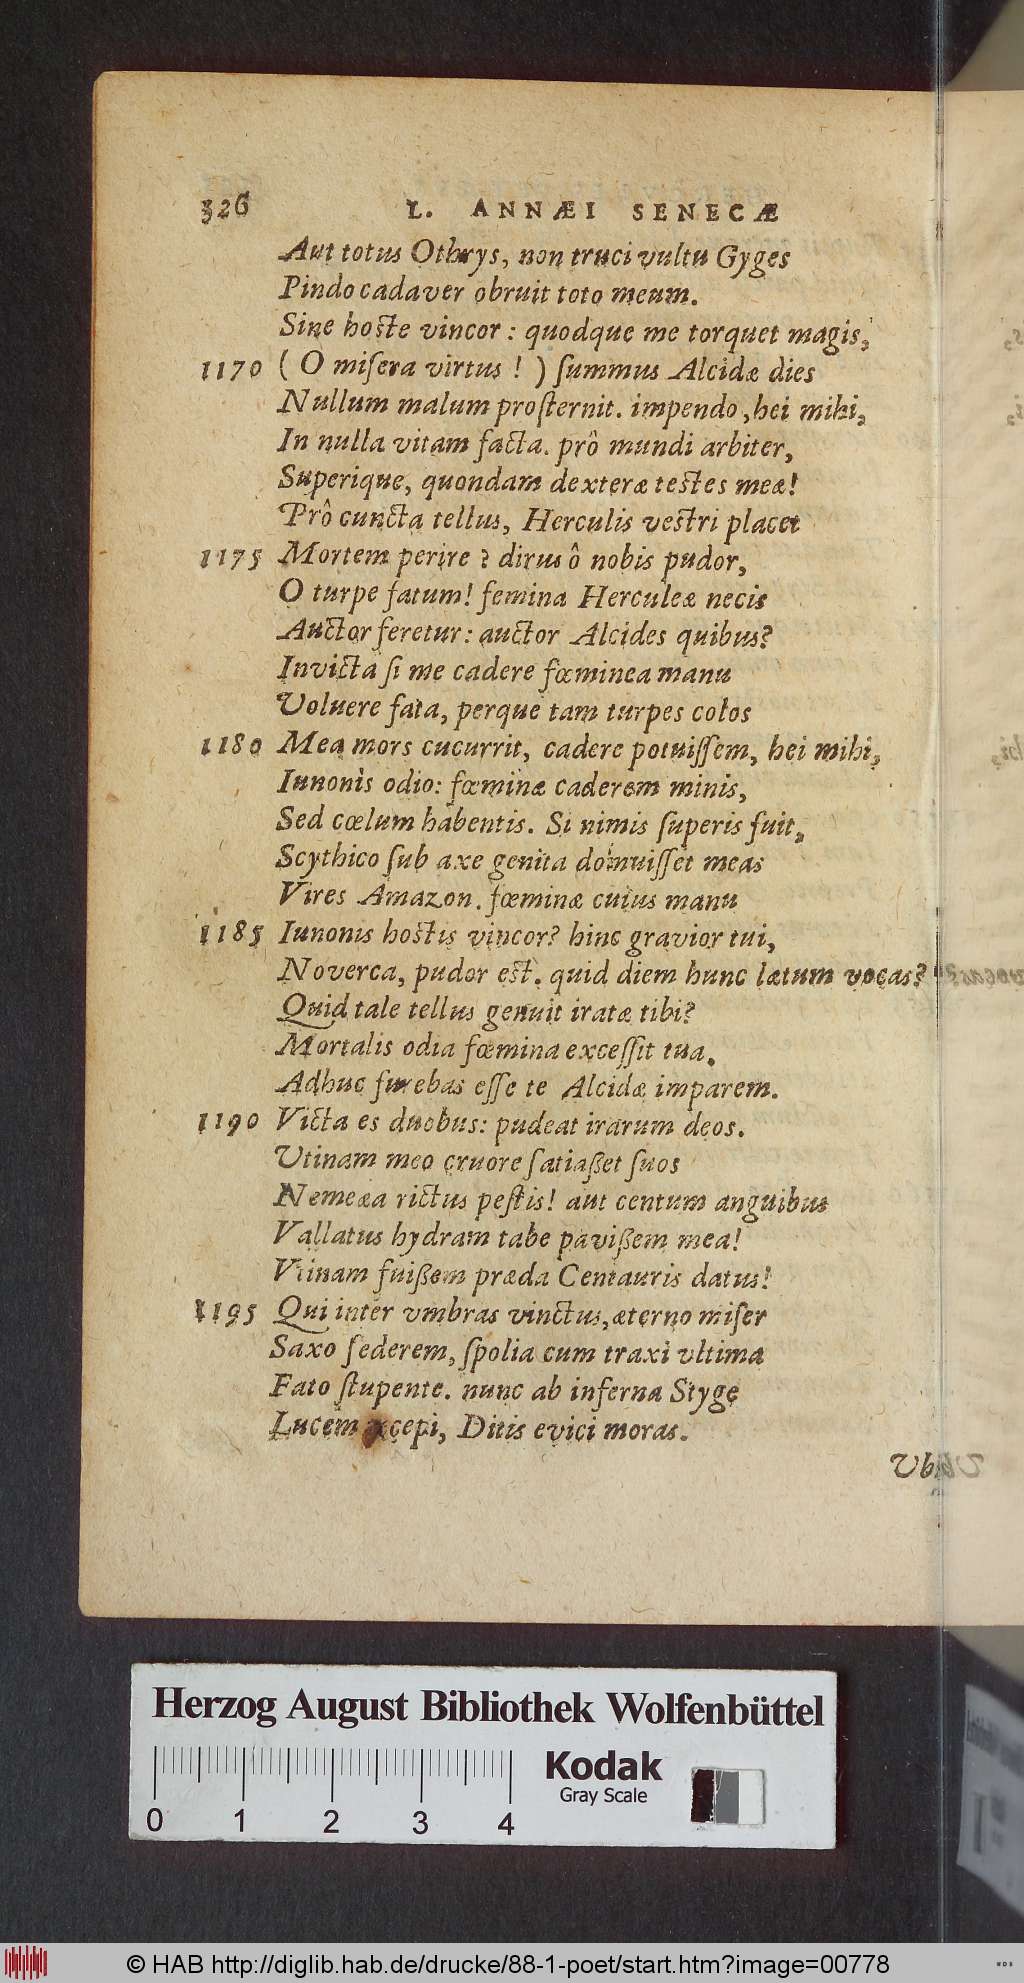 326 L. ANNÆI SENECÆ
Aut totus Othrys, non truci vultu Gyges
Pindo cadaver obruit toto meum.
Sine hoste vincor : quodque me torquet magis,
1170 ( O miſera virtus ! ) ſummus Alcidæ dies
Nullum malum proſternit. impendo, hei mihi,
In nulla vitam facta. prô mundi arbiter,
Superique, quondam dexteræ testes meæ!
Prô cuncta tellus, Herculis vestri placet
1175 Mortem perire ? dirus ô nobis pudor,
O turpe fatum! femina Herculeæ necis
Auctor feretur: auctor Alcides quibus?
Invicta ſi me cadere fœminea manu
Voluere fata, perque tam turpes colos
1180 Mea mors cucurrit, cadere potuiſſem, hei mihi,
Iunonis odio: fœminæ caderem minis,
Sed cœlum habentis. Si nimis ſuperis fuit,
Scythico ſub axe genita domuiſſet meas
Vires Amazon. fœminæ cuius manu
1185 Iunonis hostis vincor? hinc gravior tui,
Noverca, pudor est. quid diem hunc lætum vocas?
Quid tale tellus genuit iratæ tibi?
Mortalis odia fœmina exceſſit tua.
Adhuc furebas eſſe te Alcidæ imparem.
1190 Victa es duobus: pudeat irarum deos.
Utinam meo cruore ſatiaßet ſuos
Nemeæa rictus peſtis! aut centum anguibus
Vallatus hydram tabe pavißem mea!
Vtinam fuißem præda Centauris datus!
1195 Qui inter vmbras vinctus, æterno miſer
Saxo ſederem, ſpolia cum traxi vltima
Fato ſtupente. nunc ab inferna Styge
Lucem recepi, Ditis evici moras.
Vbi
Herzog August Bibliothek Wolfenbüttel
Kodak
Gray Scale
0 1 2 3 4
© HAB http://diglib.hab.de/drucke/88-1-poet/start.htm?image=00778